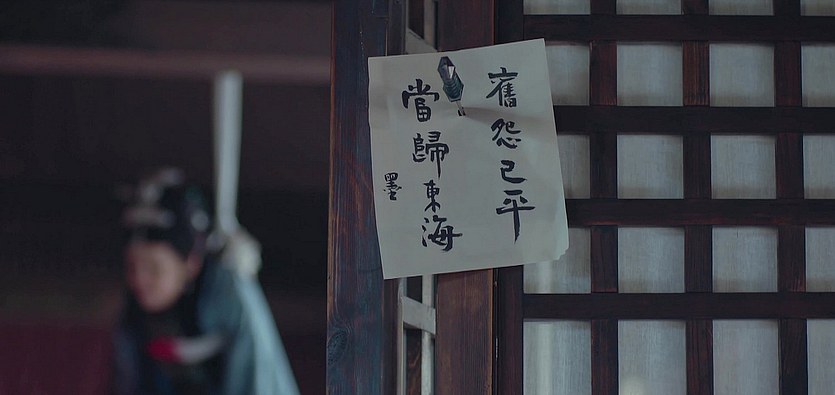 舊怨已平
當歸東海
墨